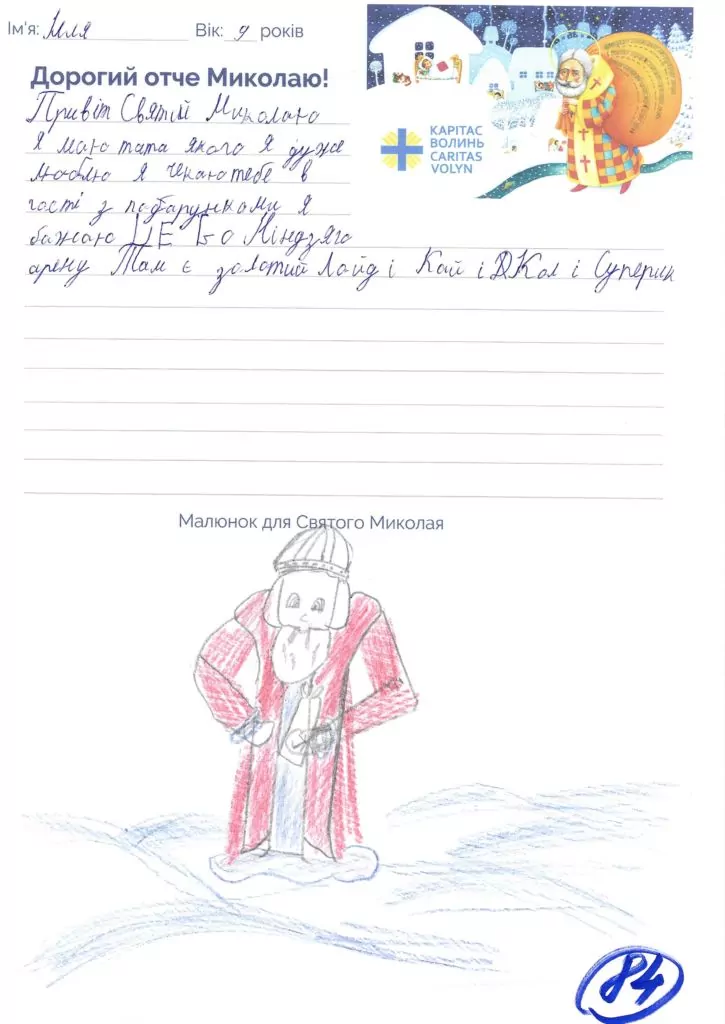 Ім'я: Ілля Вік: 9 років
Дорогий отче Миколаю!
Привіт Святий Миколаю
Я маю тата якого я дуже
люблю я чекаю тебе в
гості з подарунками я
бажаю ЦЕ Го Ніндзяго
арену Там є золотий Лойд і Кай і Кол і Суперин
КАРІТАС
ВОЛИНЬ
CARITAS
VOLYN
Малюнок для Святого Миколая
84